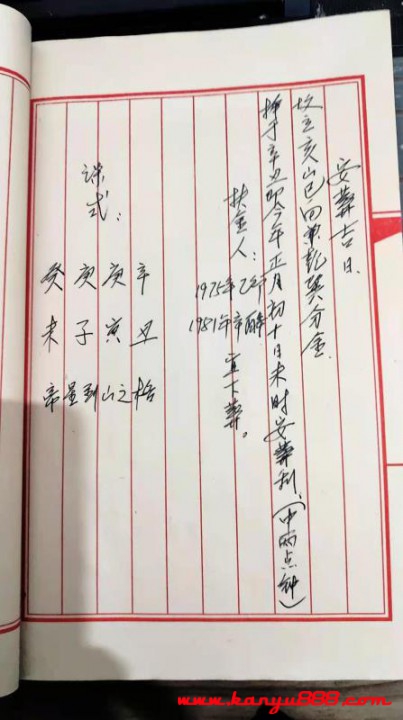 安葬吉日
坟立亥山巳向兼乾巽分金
择于辛丑即今年正月初十日未时安葬利，(中两点钟)
扶金人：
1975年乙卯
1981年辛酉
宜下葬。
课式：
辛丑
庚寅
庚子
癸未
帝星到山之格
www.kanyu888.com